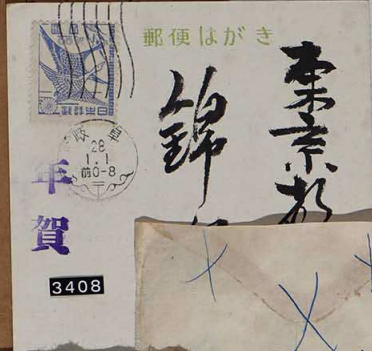 郵便はがき
東京都
錦
28
1.1
前0-8
年賀
3408